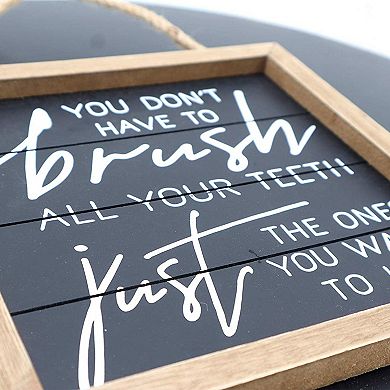 YOU DON'T
HAVE TO
brush
ALL YOUR TEETH
just
THE ONES
YOU WA
TO